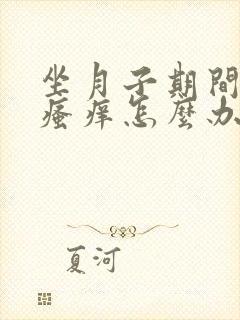 坐月子期間
瘙痒怎麼办
夏河